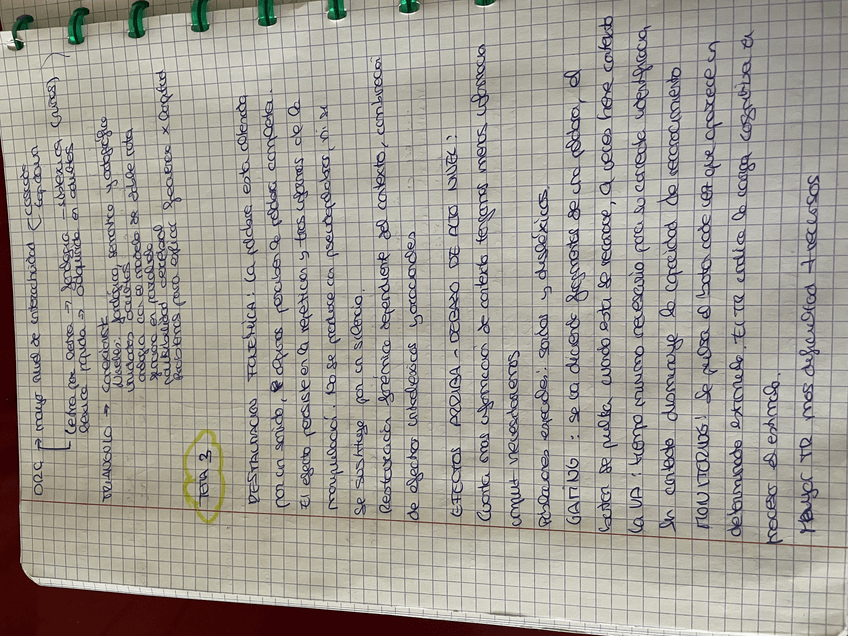 DRC → mayor nivel de interactividad (-cascada
-top down
[ letra por letra → fonológica - subléxica
lectura rápida → adquirida en adultos
TRIÁNGULO → conexionista
Niveles: fonológico, semántico y ortográfico
unidades ocultas
análogo con el modelo de doble ruta
en paralelo
plausibilidad cerebral
problemas para explicar frecuencia x longitud
TEMA 3
RESTAURACIÓN FONÉMICA: la palabra está alterada
por un sonido, algunos perciben la palabra completa.
El efecto persiste en la repetición y tras informar de la
manipulación. No se produce en pseudopalabras, ni si
se sustituye por un silencio.
Restauración fonémica dependiente del contexto, combinación
de efectos intraléxicos y
EFECTOS ARRIBA-DEBAJO DE ALTO NIVEL:
Cuanta más información de contexto tengamos menos información
input necesitaremos
Poblaciones especiales: sordos y disléxicos.
GATING: se va diciendo fragmentos de una palabra, el
lector se pulsa cuando esta se reconoce, a veces tiene contexto
la VD: tiempo mínimo necesario para su correcta identificación,
sin contexto disminuye la capacidad de reconocimiento
MONITORING: Se pulsa el botón cada vez que aparece un
determinado estímulo. El TR indica la carga cognitiva al
procesar el estímulo.
Mayor TR más dificultad + recursos